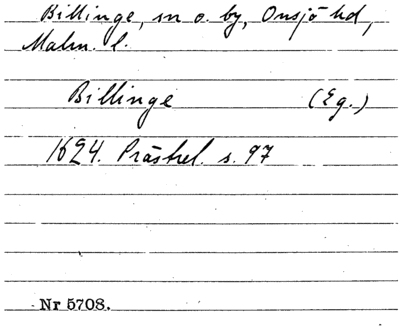 Billinge, sn o. by, Onsjö hd,
Malm. l.
Billinge (Eg.)
1624. Prästrel. s. 97
Nr 5708.